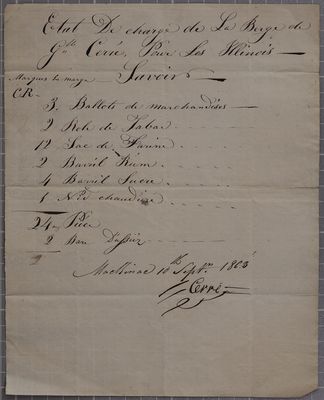 Etat De charge de La Berge de
G. Cerré, Pour Les Illinois
Marques En marge Savoir
CR
3 Ballots de marchandises
2 Role de Tabac
12 Sac de Farine
2 Baril Rum
4 Baril Sucre
1 chaudiere
24 Piece
2 Bare
Mackinac 10th Septm 1803
Cerré